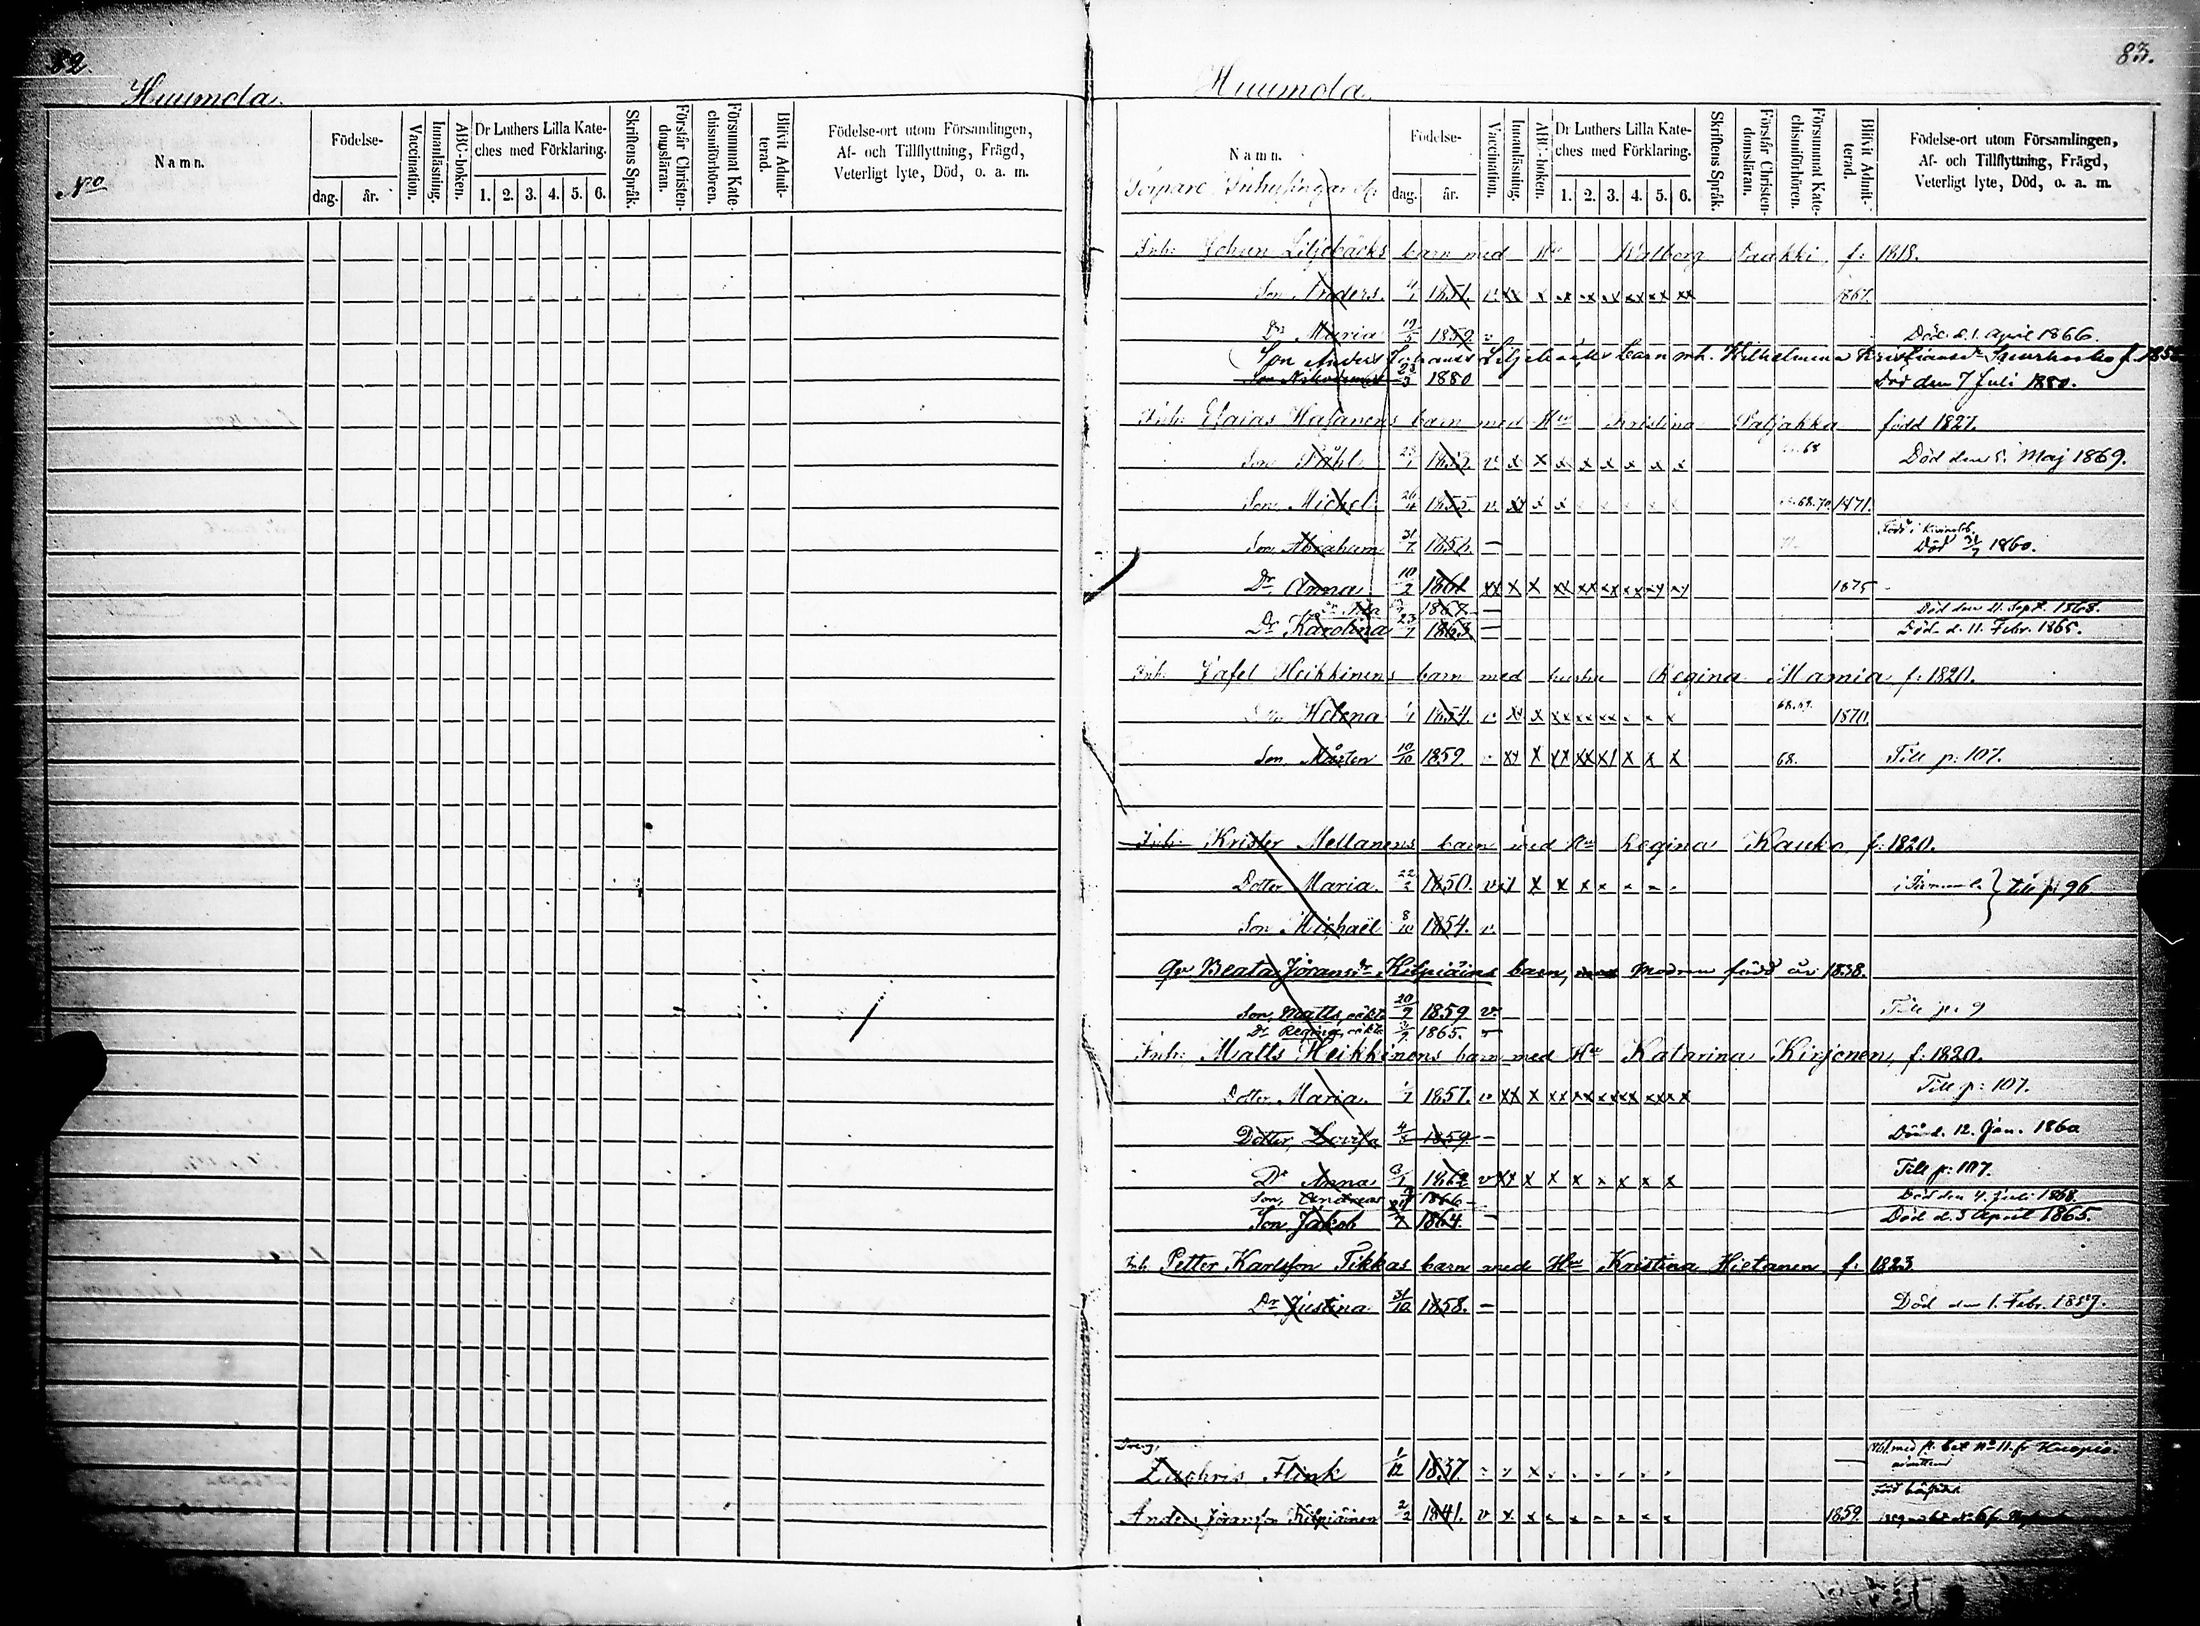 82.
Huumola.
No
Namn.
Födelse-
dag.
år.
Vaccination.
Innanläsning.
ABC-boken.
Dr Luthers Lilla Kate-
ches med Förklaring.
1. 2. 3. 4. 5. 6.
Skriftens Språk.
Förstår Christen-
domsläran.
Försummat Kate-
chismiförhören.
Blifvit Admit-
terad.
Födelse-ort utom Församlingen,
Af- och Tillflyttning, Frägd,
Veterligt lyte, Död, o. a. m.
83.
Huumola.
Namn.
Födelse-
dag.
år.
Vaccination.
Innanläsning.
ABC-boken.
Dr Luthers Lilla Kate-
ches med Förklaring.
1. 2. 3. 4. 5. 6.
Skriftens Språk.
Förstår Christen-
domsläran.
Försummat Kate-
chismiförhören.
Blifvit Admit-
terad.
Födelse-ort utom Församlingen,
Af- och Tillflyttning, Frägd,
Veterligt lyte, Död, o. a. m.
Inh: Johan Liljebäcks barn med Hu Walborg Paukki f: 1818.
Son Anders. 1851. v xx x xx xx xx xx xx xx 1867.
Dr Maria 19/5 1859 v Död d. 1. April 1866.
Son Anders Johans Liljebäcks barn m h. Wilhelmina f. 185
Son 23/3 1880 Död den 7 Juli 1880.
Inh: Esaias Hatanens barn med Hu Kristina Paljakka född 1827.
Son Påhl 23/1 1853. v x x x x x x x x 68 Död den 5. Maj 1869.
Son Michel 26/4 1855 v x x x 68.70. 1871.
Son Abraham 31/7 1856. — Död 31/7 1860.
Dr Anna 10/2 1861 xx x x xx xx xx xx xx xx 1875
1867. — Död den 21. Sept. 1868.
Dr Karolina 23/7 1863 — Död d. 11. Febr. 1865.
Inh. Gafel Heikkinens barn med hustru Regina Mamia f. 1820.
Helena 1854. v xx x xx xx xx x x x 68. 69. 1870.
Son Mårten 10/10 1859. xx x xx xx xx x x x 68. Till p: 107.
Inh: Krister Mellanens barn med Hu Regina Kauko f: 1820.
Dotter Maria. 22/2 1850. v x x x x x x x } till p: 96
Son Michaël 8/10 1854. v.
Qv Beata Jöransdr Kilpiäins barn, modren född år 1838.
Son Matts, oäkt. 20/9 1859 v Till p: 9
Dr Regina, oäkt. 1865. v
Inh: Matts Heikkinens barn med Hu Katarina Kirjonen, f: 1820.
Dotter Maria. 1/7 1857. v xx x xx xx xx xx xx x Till p: 107.
Dotter Lovisa 4/5 1859. — Död d. 12. Jan. 1860
Dr Anna 1862 v xx x x x x x x x Till p: 107.
Son Andreas 1866 — Död den 4. Juli 1868.
Son Jakob 1864. — Död d. 3 April 1865.
Inh. Petter Karlsson Tikkas barn med Hu Kristina Hietanen f. 1823
Dr Justina 31/10 1858. — Död den 1. Febr. 1859.
Dreng,
Zachris Flink 1/12 1837. x med fl. bet No 11. fr Kuopio.
Anders Jöransson Kilpiäinen 2/2 1841. v x x x x x x x x 1859.